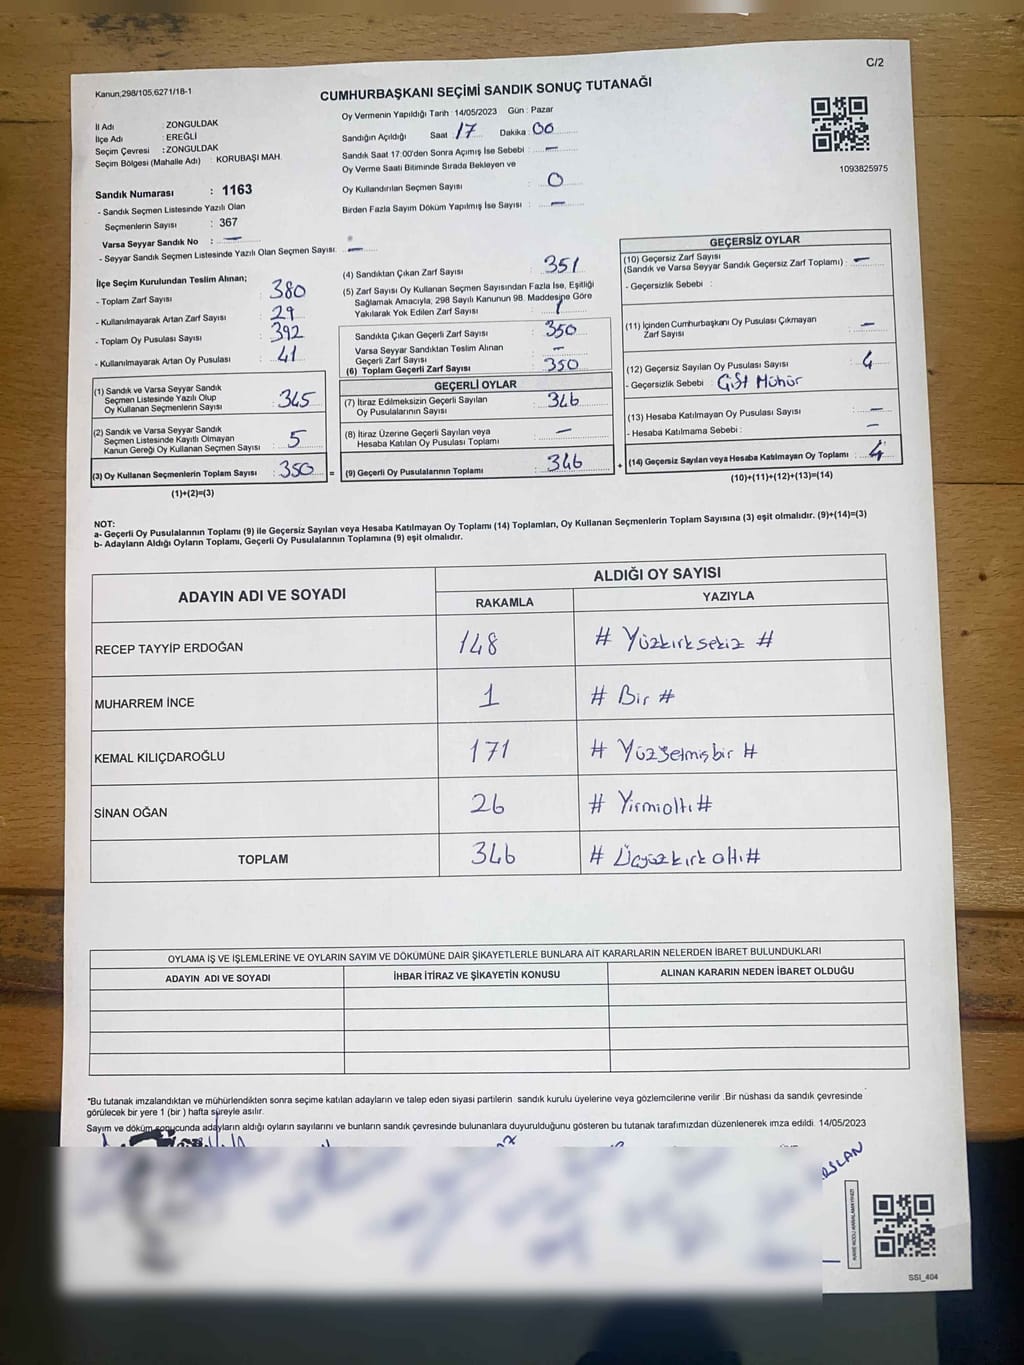 C/2
Kanun,298/105,6271/18-1
CUMHURBAŞKANI SEÇİMİ SANDIK SONUÇ TUTANAĞI
İl Adı : ZONGULDAK
İlçe Adı : EREĞLİ
Seçim Çevresi : ZONGULDAK
Seçim Bölgesi (Mahalle Adı) : KORUBAŞI MAH.
Sandık Numarası : 1163
- Sandık Seçmen Listesinde Yazılı Olan
Seçmenlerin Sayısı : 367
Varsa Seyyar Sandık No : —
- Seyyar Sandık Seçmen Listesinde Yazılı Olan Seçmen Sayısı: —
Oy Vermenin Yapıldığı Tarih :14/05/2023 Gün : Pazar
Sandığın Açıldığı Saat 17 Dakika 00
Sandık Saat 17:00'den Sonra Açımış İse Sebebi : —
Oy Verme Saati Bitiminde Sırada Bekleyen ve
Oy Kullandırılan Seçmen Sayısı : 0
Birden Fazla Sayım Döküm Yapılmış İse Sayısı : —
1093825975
İlçe Seçim Kurulundan Teslim Alınan;
- Toplam Zarf Sayısı : 380
- Kullanılmayarak Artan Zarf Sayısı : 29
- Toplam Oy Pusulası Sayısı : 392
- Kullanılmayarak Artan Oy Pusulası : 41
(1) Sandık ve Varsa Seyyar Sandık
Seçmen Listesinde Yazılı Olup
Oy Kullanan Seçmenlerin Sayısı : 345
(2) Sandık ve Varsa Seyyar Sandık
Seçmen Listesinde Kayıtlı Olmayan
Kanun Gereği Oy Kullanan Seçmen Sayısı : 5
(3) Oy Kullanan Seçmenlerin Toplam Sayısı : 350 =
(1)+(2)=(3)
(4) Sandıktan Çıkan Zarf Sayısı : 351
(5) Zarf Sayısı Oy Kullanan Seçmen Sayısından Fazla İse, Eşitliği
Sağlamak Amacıyla, 298 Sayılı Kanunun 98. Maddesine Göre
Yakılarak Yok Edilen Zarf Sayısı : 1
Sandıkta Çıkan Geçerli Zarf Sayısı : 350
Varsa Seyyar Sandıktan Teslim Alınan
Geçerli Zarf Sayısı : —
(6) Toplam Geçerli Zarf Sayısı : 350
GEÇERLİ OYLAR
(7) İtiraz Edilmeksizin Geçerli Sayılan
Oy Pusulalarının Sayısı : 346
(8) İtiraz Üzerine Geçerli Sayılan veya
Hesaba Katılan Oy Pusulası Toplamı : —
(9) Geçerli Oy Pusulalarının Toplamı : 346 +
GEÇERSİZ OYLAR
(10) Geçersiz Zarf Sayısı
(Sandık ve Varsa Seyyar Sandık Geçersiz Zarf Toplamı) : —
- Geçersizlik Sebebi :
(11) İçinden Cumhurbaşkanı Oy Pusulası Çıkmayan
Zarf Sayısı : —
(12) Geçersiz Sayılan Oy Pusulası Sayısı : 4
- Geçersizlik Sebebi : Çift Mühür
(13) Hesaba Katılmayan Oy Pusulası Sayısı : —
- Hesaba Katılmama Sebebi : —
(14) Geçersiz Sayılan veya Hesaba Katılmayan Oy Toplamı : 4
(10)+(11)+(12)+(13)=(14)
NOT:
a- Geçerli Oy Pusulalarının Toplamı (9) ile Geçersiz Sayılan veya Hesaba Katılmayan Oy Toplamı (14) Toplamları, Oy Kullanan Seçmenlerin Toplam Sayısına (3) eşit olmalıdır. (9)+(14)=(3)
b- Adayların Aldığı Oyların Toplamı, Geçerli Oy Pusulalarının Toplamına (9) eşit olmalıdır.
ADAYIN ADI VE SOYADI ALDIĞI OY SAYISI
RAKAMLA YAZIYLA
RECEP TAYYİP ERDOĞAN 148 # Yüzkırksekiz #
MUHARREM İNCE 1 # Bir #
KEMAL KILIÇDAROĞLU 171 # Yüzyetmişbir #
SİNAN OĞAN 26 # Yirmialtı #
TOPLAM 346 # Üçyüzkırkaltı #
OYLAMA İŞ VE İŞLEMLERİNE VE OYLARIN SAYIM VE DÖKÜMÜNE DAİR ŞİKAYETLERLE BUNLARA AİT KARARLARIN NELERDEN İBARET BULUNDUKLARI
ADAYIN ADI VE SOYADI İHBAR İTİRAZ VE ŞİKAYETİN KONUSU ALINAN KARARIN NEDEN İBARET OLDUĞU
"Bu tutanak imzalandıktan ve mühürlendikten sonra seçime katılan adayların ve talep eden siyasi partilerin sandık kurulu üyelerine veya gözlemcilerine verilir .Bir nüshası da sandık çevresinde
görülecek bir yere 1 (bir ) hafta süreyle asılır.
Sayım ve döküm sonucunda adayların aldığı oyların sayılarını ve bunların sandık çevresinde bulunanlara duyurulduğunu gösteren bu tutanak tarafımızdan düzenlenerek imza edildi. 14/05/2023
SSI_404